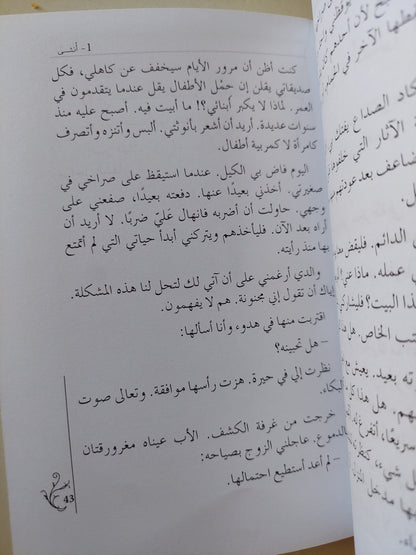 1- أنثى
كنت أظن أن مرور الأيام سيخفف عن كاهلي، فكل
صديقاتي يقلن إن حمْل الأطفال يقل عندما يتقدمون في
العمر. لماذا لا يكبر أبنائي؟! ما أبيت فيه. أصبح عليه منذ
سنوات عديدة. أريد أن أشعر بأنوثتي. ألبس وأتنزه وأتصرف
كامرأة لا كمربية أطفال.
اليوم فاض بي الكيل. عندما استيقظ على صراخي في
صغيرتي. أخذني بعيدًا عنها. دفعته بعيدًا، صفعني على
وجهي. حاولت أن أضربه فانهال عَليّ ضربًا. لا أريد أن
أراه بعد الآن. فليأخذهم ويتركني أبدأ حياتي التي لم أتمتع
بها منذ رأيته.
والدي أرغمني على أن آتي لك لتحل لنا هذه المشكلة.
إياك أن تقول إني مجنونة. هم لا يفهمون.
اقتربت منها في هدوء وأنا أسألها:
– هل تحبينه؟
نظرت إلي في حيرة. هزت رأسها موافقة. وتعالى صوت
البكاء.
خرجت من غرفة الكشف. الأب عيناه مغرورقتان
بالدموع. عاجلني الزوج بصياحه:
– لم أعد أستطيع احتمالها.
43
كاد الصداع يفتك
الآثار التي خلفوها
الدائم. فليقض
عمله. ماذا عني
ذا البيت؟ فليشاركني
الخاص. هل
ته بعيد. يعيش
هم. هل هذا
سريعًا، أتفرغ
ل شيء.
ها مدخل